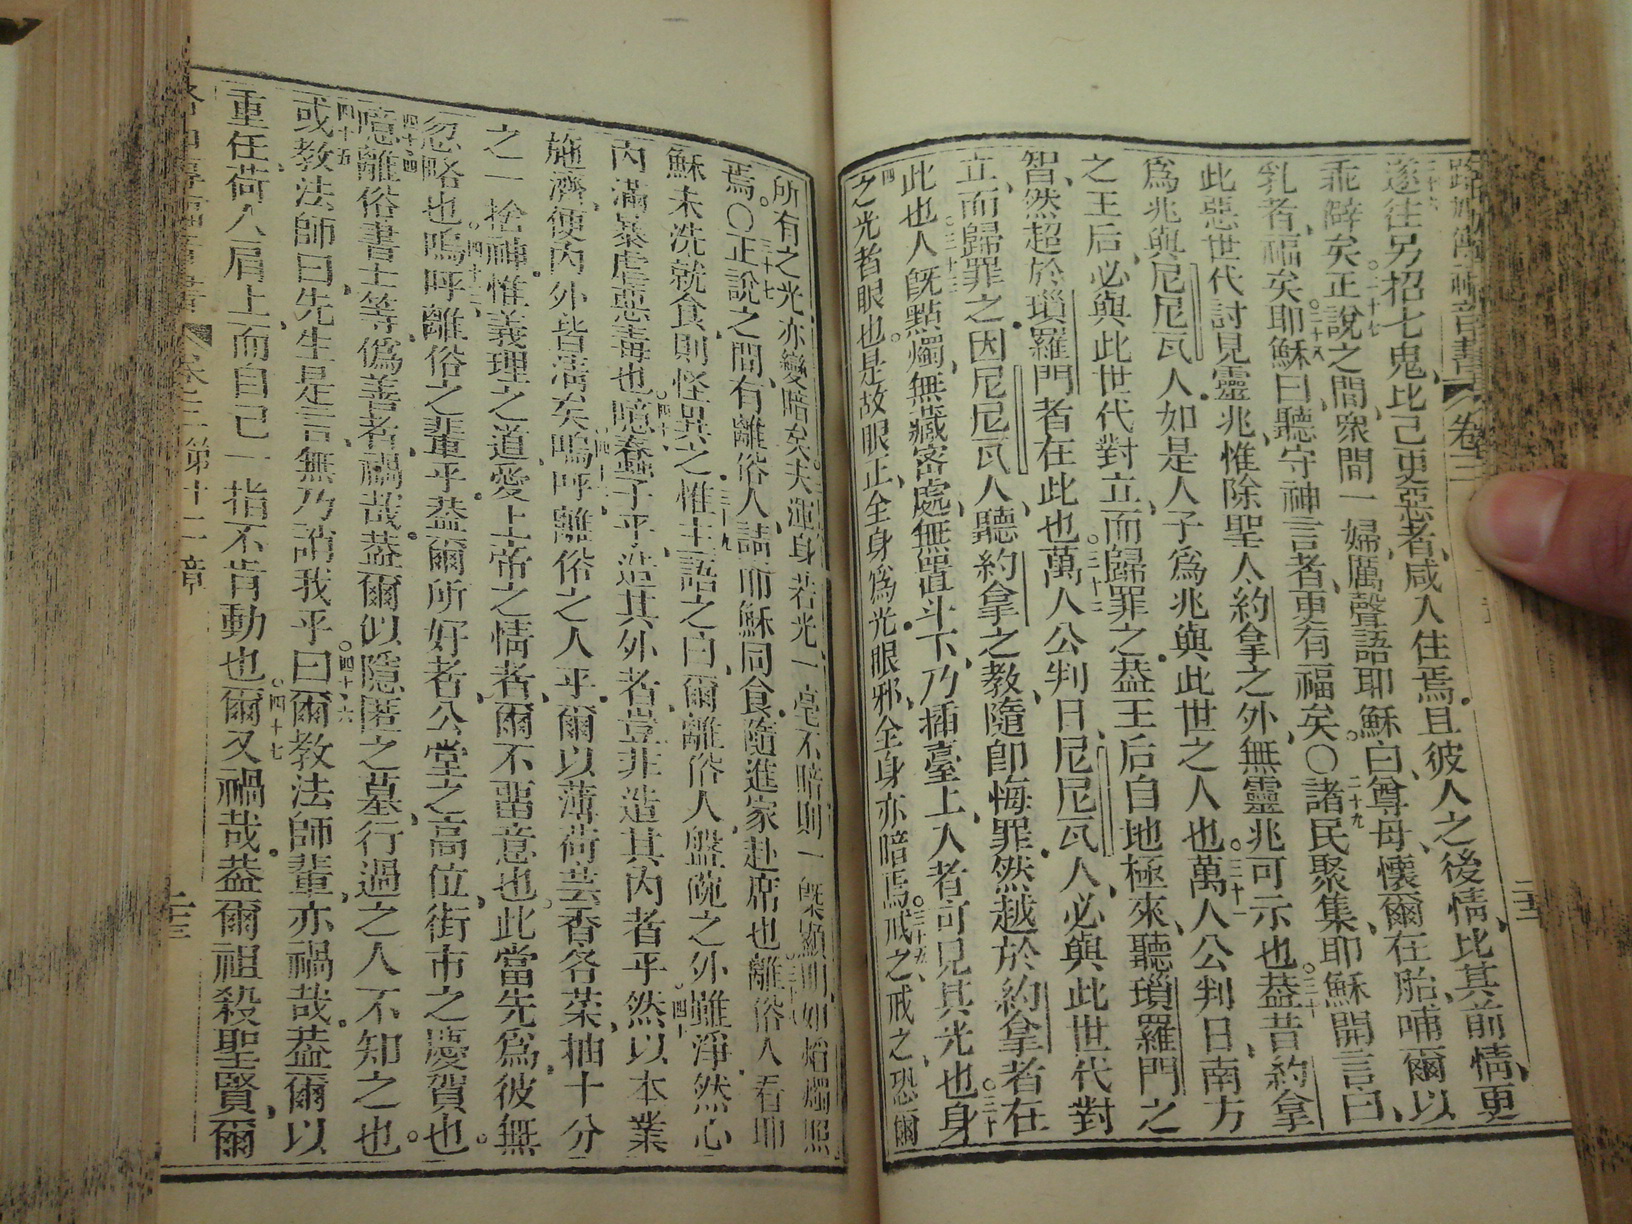 路加傳福音書卷三
遂往另招七鬼比己更惡者、咸入住焉、且彼人之後情、比其前情、更
乖降矣。二十七正說之間、衆間一婦厲聲語耶穌曰、尊母、懷爾在胎、哺爾以
乳者、福矣。二十八耶穌曰、聽守神言者、更有福矣。○二十九諸民聚集、耶穌開言曰、
此惡世代討見靈兆、惟除聖人約拿之外、無靈兆可示也。三十葢昔約拿
爲兆與尼尼瓦人、如是人子爲兆與此世之人也。三十一萬人公判日、南方
之王后、必與此世代對立、而歸罪之、葢王后自地極來、聽瑣羅門之
智、然超於瑣羅門者在此也。三十二萬人公判日、尼尼瓦人、必與此世代對
立、而歸罪之、因尼尼瓦人、聽約拿之教、隨卽悔罪、然越於約拿者在
此也。三十三人旣點燭、無藏密處、無置斗下、乃插臺上、入者可見其光也。三十四身
之光者眼也。是故眼正、全身爲光、眼邪、全身亦暗焉。三十五戒之戒之、恐爾
所有之光、亦變暗矣。三十六夫渾身若光、一毫不暗、則一槩顯明、如焰燭照
焉。○三十七正說之間、有離俗人、請耶穌同食、隨進家赴席也。三十八離俗人看耶
穌未洗就食、則怪異之。三十九惟主語之曰、爾離俗人、盤碗之外雖淨、然心
內滿暴虐惡毒也。四十噫、蠢子乎、造其外者、豈非造其內者乎。四十一然以本業
施濟、使內外皆潔矣。四十二嗚呼、離俗之人乎、爾以薄荷芸香各菜、抽十分
之一捨神、惟義理之道、愛上帝之情者、爾不畱意也。此當先爲、彼無
忽略也。四十三嗚呼、離俗之輩乎、葢爾所好者、公堂之高位、街市之慶賀也。
四十四噫、離俗書士等、僞善者、禍哉、葢爾似隱匿之墓、行過之人不知之也。
四十五或教法師曰、先生是言、無乃誚我乎。四十六曰、爾教法師輩、亦禍哉、葢爾以
重任荷人肩上、而自己一指不肯動也。四十七爾又禍哉、葢爾祖殺聖賢、爾
路加傳福音書卷三第十二章